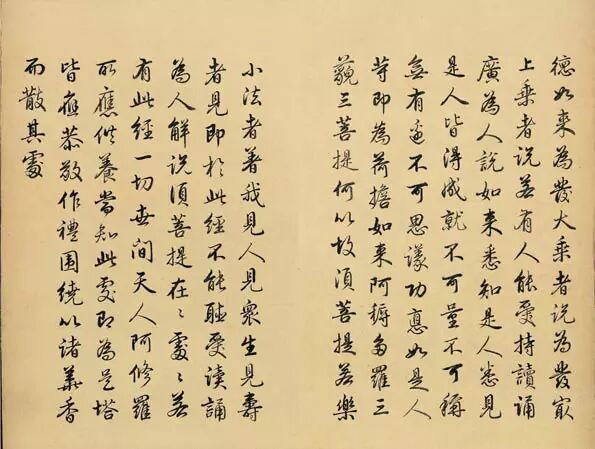 德如來為發大乘者說為發最
上乘者說若有人能受持讀誦
廣為人說如來悉知是人悉見
是人皆得成就不可量不可稱
無有邊不可思議功德如是人
等即為荷擔如來阿耨多羅三
藐三菩提何以故須菩提若樂
小法者著我見人見眾生見壽
者見即於此經不能聽受讀誦
為人解說須菩提在〻處〻若
有此經一切世間天人阿修羅
所應供養當知此處即為是塔
皆應恭敬作禮圍繞以諸華香
而散其處